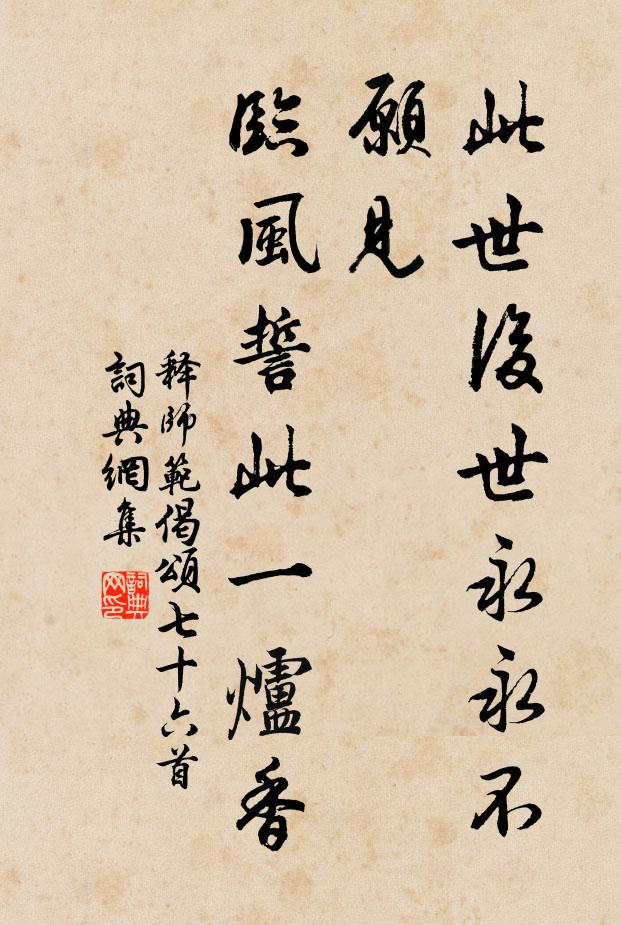 此世後世永永不
願見
臨風誓此一爐香
释師範偈頌七十六首
詞典網集
詞典网印